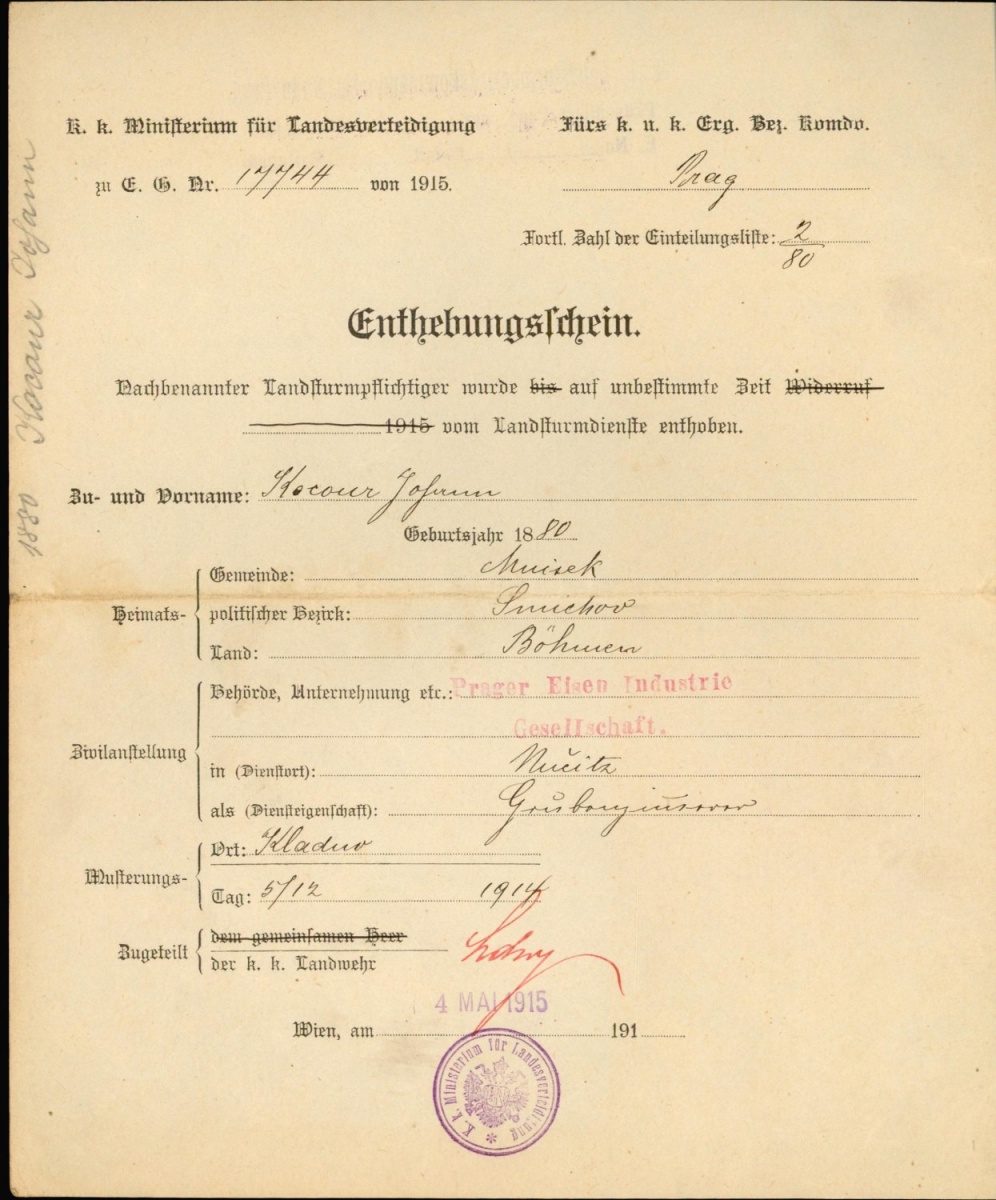 K. k. Ministerium für Landesverteidigung
Fürs k. u. k. Erg. Bez. Komdo.
zu E. G. Nr. 17744 von 1915.
Prag
Fortl. Zahl der Einteilungsliste: 2/80
Enthebungsschein.
Nachbenannter Landsturmpflichtiger wurde bis auf unbestimmte Zeit Widerruf
1915 vom Landsturmdienste enthoben.
Zu- und Vorname: Kocour Johann
Geburtsjahr 1880
Heimats-
Gemeinde: Mnisek
politischer Bezirk: Smichov
Land: Böhmen
Zivilanstellung
Behörde, Unternehmung etc.: Prager Eisen Industrie
Gesellschaft.
in (Dienstort): Nučitz
als (Diensteigenschaft):
Musterungs-
Ort: Kladno
Tag: 5/12 1914
Zugeteilt
dem gemeinsamen Heer
der k. k. Landwehr
4 MAI 1915
Wien, am 191
K. k. Ministerium für Landesverteidigung
1880 Kocour Johann